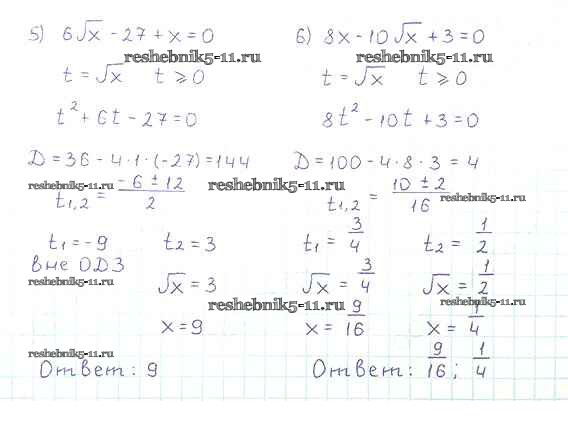 5) 6√x - 27 + x = 0
reshebnik5-11.ru
t = √x t ⩾ 0
t² + 6t - 27 = 0
D = 36 - 4·1·(-27) = 144
reshebnik5-11.ru
t1,2 = (-6 ± 12)/2
t1 = -9 t2 = 3
вне ОДЗ
reshebnik5-11.ru
√x = 3
x = 9
reshebnik5-11.ru
Ответ: 9
6) 8x - 10√x + 3 = 0
reshebnik5-11.ru
t = √x t ⩾ 0
8t² - 10t + 3 = 0
D = 100 - 4·8·3 = 4
reshebnik5-11.ru
t1,2 = (10 ± 2)/16
reshebnik5-11.ru
t1 = 3/4 t2 = 1/2
√x = 3/4 √x = 1/2
reshebnik5-11.ru
reshebnik5-11.ru
x = 9/16 x = 1/4
Ответ: 9/16; 1/4